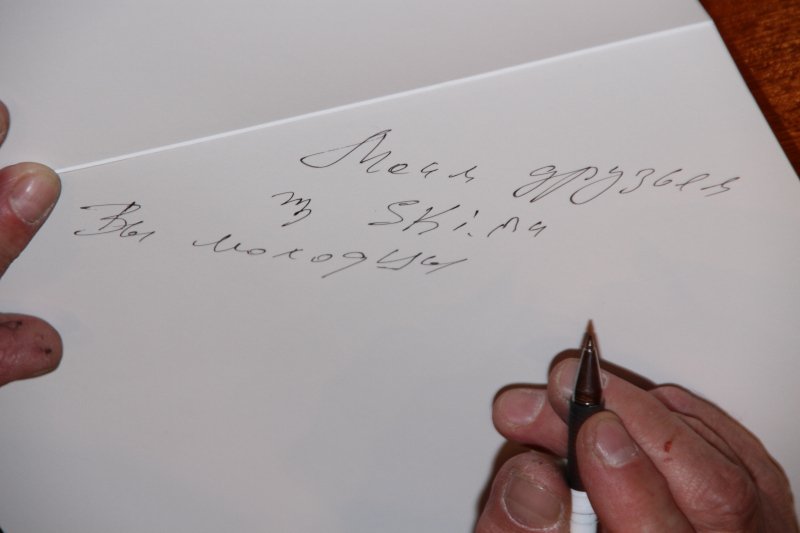 Моим друзьям
из Ski.ru
Вы молодцы